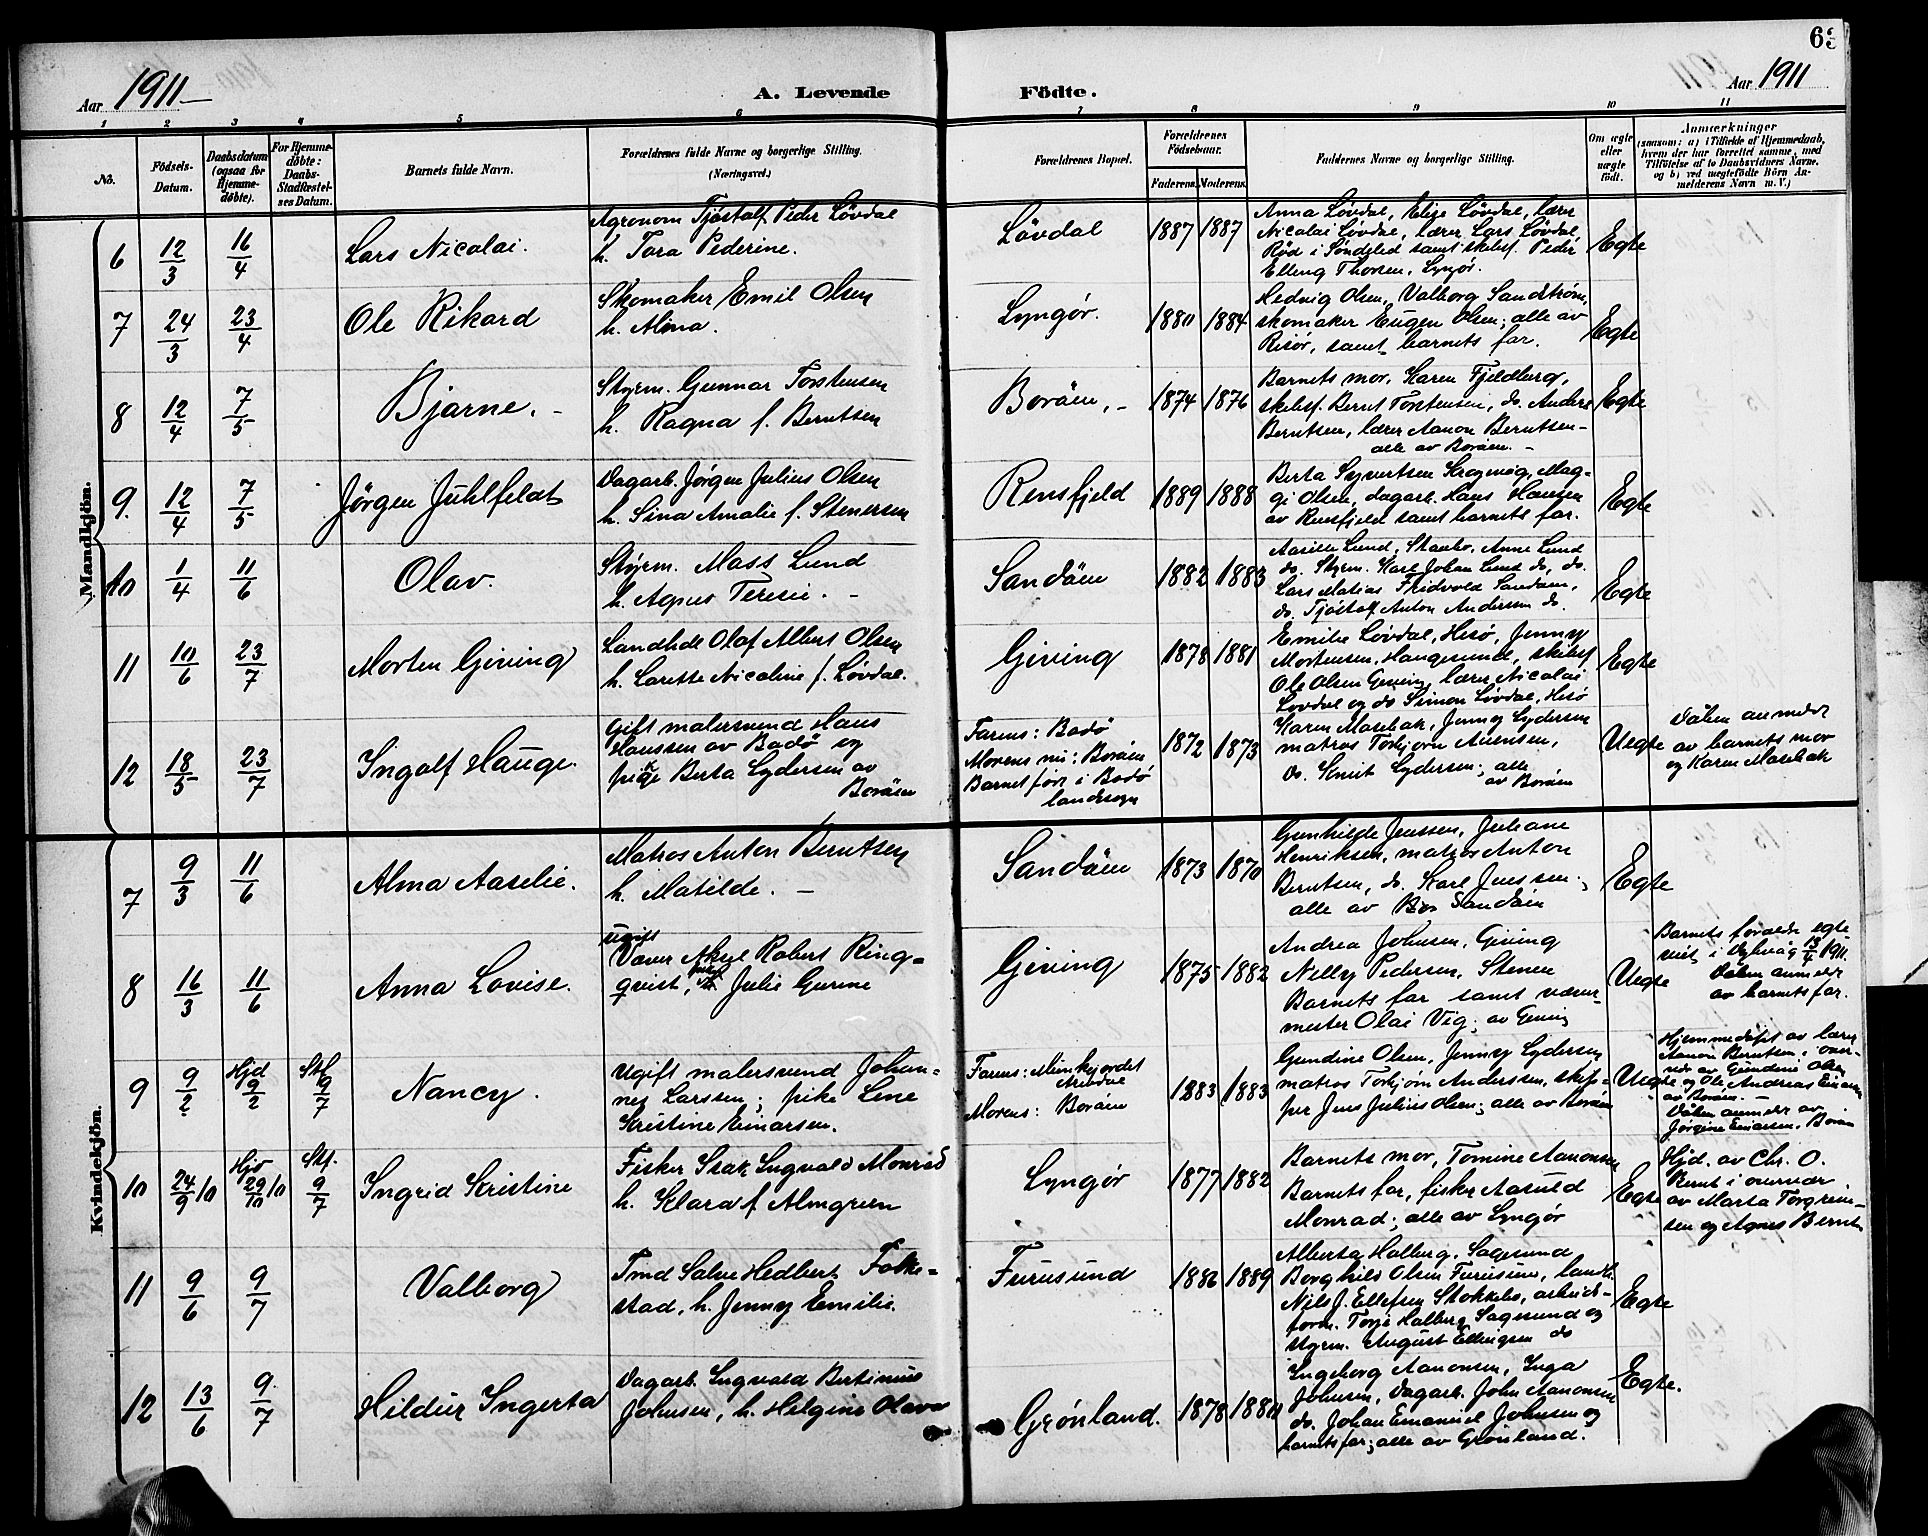 63
Aar 1911
A. Levende
Födte.
Aar 1911
1 2 3 4 5 6 7 8 9 10 11
No.
Födsels-
Datum.
Daabsdatum
(ogsaa for
Hjemme-
døbte).
For Hjemme-
døbte:
Daabs-
Stadfæstel-
ses Datum.
Barnets fulde Navn.
Forældrenes fulde Navne og borgerlige Stilling.
(Næringsvei.)
Forældrenes Bopæl.
Forældrenes
Födselsaar.
Faderens. Moderens.
Faddernes Navne og borgerlige Stilling.
Om ægte
eller
uægte
födt.
Anmærkninger
(saasom: a) i Tilfælde af Hjemmedaab,
hvem der har forrettet samme, med
Tilföielse af to Daabsvidners Navne.
og b) ved uægtefödte Börn An-
melderens Navn m. V.)
Mandkjön.
6
12/3
16/4
Lars Nicolai.
Agronom Tjøstolf Peder Lövdal
h. Tora Pederine.
Lövdal
1887 1887
Anna Lövdal, Elise Lövdal, lærer
Nicolai Lövdal, lærer Lars Lövdal,
Röd i Söndeled samt skibsf. Peder
Elling Thorsen, Lyngör.
Egte
7
24/3
23/4
Ole Rikard
Skomaker Emil Olsen
h. Alma.
Lyngör.
1880 1884
Hedvig Olsen, Valborg Sandström,
skomaker Eugen Olsen; alle av
Risör, samt barnets far.
Egte
8
12/4
7/5
Bjarne. -
Styrm. Gunnar Torstensen
h. Ragna f. Berntsen
Boröen, -
1874 1876
Barnets mor, Karen Fjeldberg,
skibsf. Bernt Torstensen, do. Anders
Berntsen, lærer Aanon Berntsen -
alle av Boröen. -
Egte
9.
12/4
7/5
Jörgen Juhlfeldt
Dagarb. Jörgen Julius Olsen
h. Sina Amalie f. Stenersen
Rensfjeld
1889 1888
Berta Syvertsen Krogvåg, Mag-
gi Olsen, dagarb. Hans Hansen
av Rensfjeld samt barnets far.
Egte
10
1/4
11/6
Olav.
Styrm. Mass Lund
h. Agnes Teresie. -
Sandöen
1882 1883
Lund, Staubo, Anne Lund
do. Styrm. Karl Johan Lund do, do.
Lars Matias Fridvold Sandöen,
do. Tjöstolf Anton Andersen do.
Egte
11
10/6
23/7
Morten Gieving
Landhdl Olaf Albert Olsen
h. Larette Nicoline f. Lövdal.
Gieving
1878 1881
Emilie Lövdal, Hisö, Jenny
Mortensen, Haugesund, skibsf.
Ole Olsen Gieving, lærer Nicolai
Lövdal og do Simon Lövdal, Hisö
Egte
12
18/5
23/7
Ingolf Hauge.
Gift malersvend Hans
Hanssen av Bodö og
pike Berta Lydersen av
Boröen
Farens: Bodö
Morens nu: Boröen
Barnet föd i Bodö
landsogn
1872 1873
Karen Marebak, Jenny Lydersen
matros Torbjörn Aanensen,
do. Knut Lydersen; alle
av Boröen
Uegte
Dåben anmeldt
av barnets mor
og Karen Marebak
Kvindekjön.
7
9/3
11/6
Alma Aaselie.
Matros Anton Berntsen
h. Matilde. -
Sandöen
1873 1870
Gunhilde Jenssen, Juliane
Henriksen, matros Anton
Berntsen, do. Karl Jenssen;
alle av Sandöen
Egte
8
16/3
11/6
Anna Lovise.
ugift
Væver Aksel Robert Ring-
qvist, Julie Gurine
Gieving
1875 1882
Andrea Johnsen, Gieving
Nelly Pedersen, Stenen
Barnets far samt væver-
mester Olai Vig; av Gieving
Uegte
Barnets foreldre egte-
viet i Dybvåg 13/4 1911.
Dåben anmeldt
av barnets far.
9
9/2
Hjd 9/2
Stf 9/7
Nancy.
Ugift malersvend Johan-
nes Larssen; pike Lene
Kristine Einarsen.
Farens: Munkejordet
Arendal
Morens: Boröen
1883 1883
Gundine Olsen, Jenny Lydersen
matros Torbjörn Anderssen, skip-
per Jens Julius Olsen; alle av Boröen
Uegte
Hjemmedöpt av lærer
Aanon Berntsen i over-
vær av Gundine Olsen
og Ole Andreas Einarsen
av Boröen. -
Dåben anmeldt av
Jörgine Einarsen, Boröen
10
24/9 10
Hjd 29/10 10
Stf. 9/7
Ingrid Kristine
Fisker Isak Ingvald Monrad
h. Klara f. Almgreen
Lyngör
1877 1882
Barnets mor, Tomine Aanonsen
Barnets far, fisker Aasuld
Monrad; alle av Lyngör
Egte
Hjd. av Chr. O.
Bernt i overvær
av Marta Torgrim-
sen og Agnes Berntsen
11
9/6
9/7
Valborg
Tmd Salve Hedbert Folke-
stad, h. Jenny Emilie.
Furusund
1886 1889
Alberta Halberg, Sagesund
Borghild Olsen Furusund, landh.
Nils J. Ellefsen Stokkebo, arbeids-
form. Terje Halberg Sagesund og
styrm. August Ellingsen do
Egte
12
13/6
9/7
Hildur Ingerta
Dagarb. Ingvald Bertinius
Johnsen, h. Helgine Olava
Grönland.
1878 1880
Ingeborg Aanonsen, Inga
Johnsen, Dagarb. John Aanonsen
do. Johan Emanuel Johnsen og
barnets far; alle av Grönland.
Egte.